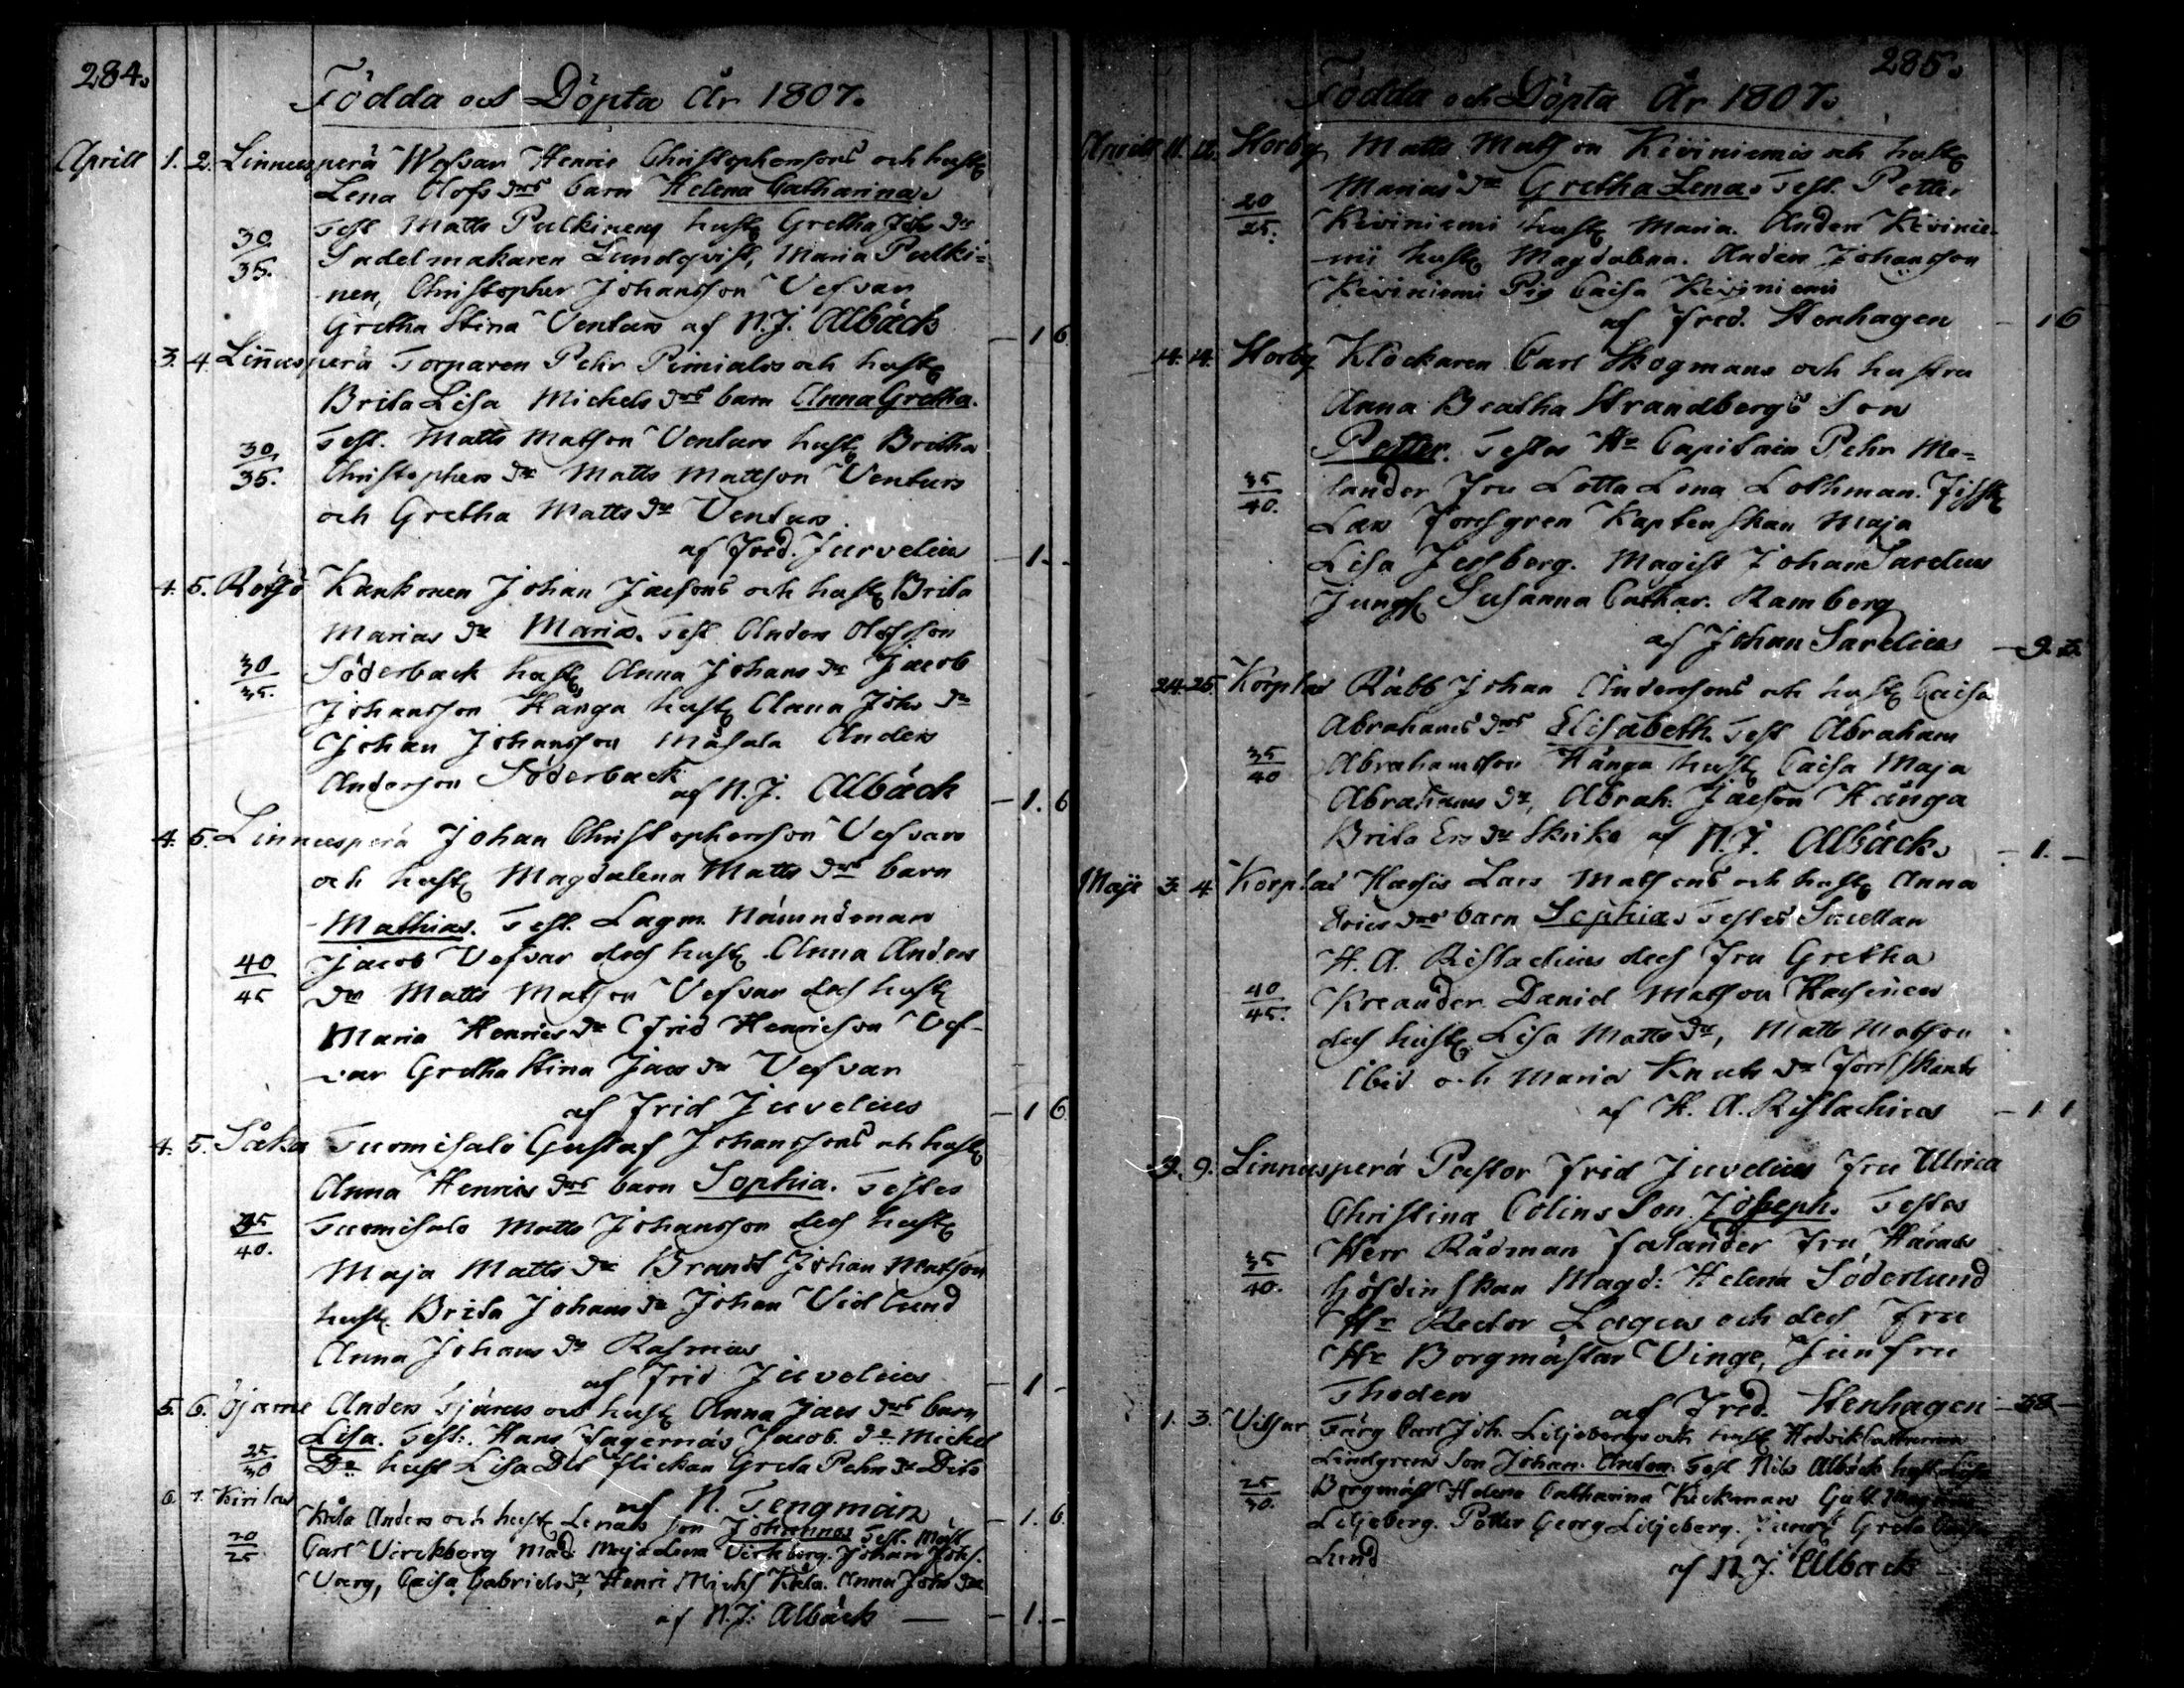 284.
Födda och Döpta År 1807.
Aprill 1. 2. Linnusperä Wefvar Henric Christophersons och hust
Lena Olofs drs barn Helena Catharina.
Test Matts Pulkinen hust Gretha Johs dr
30/35. Sadelmakaren Lundqvist, Maria Pulki=
nen, Christopher Johansson Vefvar
Gretha Stina Venturs af N. J. Albäck — 1 6
3. 4. Linnusperä Torparen Pehr Pimialos och hust
Brita Lisa Michels drs barn Anna Gretha.
Test. Matts Matson Venturs hust Britha
30/35. Christophers dr Matts Mattson Venturs
och Gretha Matts dr Venturs.
af Fred. Juvelius — 1 -
4. 5. Rötsjö Kankonen Johan Jacsons och hust Brita
Marias dr Maria. Test Anders Olofsson
30/35. Söderback hust Anna Johans dr Jacob
Johansson Hånga hust Anna Johs dr
Johan Johansson Måsala Anders
Anderson Söderback
af N. J. Albäck — 1. 6
4. 5. Linnusperä Johan Christophersson Vefvars
och hust Magdalena Matts drs barn
Mathias. Test. Lagm. Nämndeman
40/45 Jacob Vefvar des hust Anna Anders
dr Matts Matson Vefvar des hust
Maria Henrics dr Frid Henricson Vef-
var Gretha Stina Jacs dr Vefvar
af Frid Juvelius — 1 6
4. 5. Såka Tuomisalo Gustaf Johanssons och hust
Anna Henrics drs barn Sophia. Testes
35/40. Tuomisalo Matts Johansson des hust
Maja Matts dr Brandt Johan Matson
hust. Brita Johans dr Johan Vidlund
Anna Johans dr Rasmus
af Frid Juvelius — 1 -
5. 6. Öjarne Anders Tjärus och hust Anna Jacs drs barn
Lisa. Test. Hans Fagernäs Jacob. dr Michel
25/30 Do hust Lisa Do flickan Greta Pehrs dr Dito
af N. Tengman — 1. 6
6. 7. Kirilax Kåla Anders och hust Lenas son Johannes Test. Mäst
20/25 Carl Virckberg Mad: Maja Lena Virckberg. Johan Johs.
Varg, Caisa Gabriels dr, Henri Michs Kåla. Anna Johs dr
af N. J. Albäck — 1. -
285.
Födda och Döpta År 1807.
Aprill 11. 12. Storby Matts Matson Kiviniemis och hust
Marias dr Gretha Lena. Test. Petter
20/25. Kiviniemi hust Maria. Anders Kivinie-
mi hust Magdalena. Anders Johansson
Kiviniemi Pig Caisa Kiviniemi
af Fred. Stenhagen — 1 6
14. 14. Storby Klockaren Carl Skogmans och hustru
Anna Beatha Strandbergs Son
Petter. Testes Hr Capitain Pehr Me=
35/40. lander Fru Lotta Lena Lothman.
Lars Forsgren Kaptenskan Maja
Lisa Jessberg. Magist Johan Sarelius
Jungf Susanna Cathar. Ramberg
af Johan Sarelius — 9.
24. 25. Korplax Räbb Johan Anderssons och hust Caisa
Abrahams drs Elisabeth. Test Abraham
35/40 Abrahamsson Hånga hust Caisa Maja
Abrahams dr, Abrah. Jacson Hånga
Brita Ers dr Skrike af N. J. Albäck. — 1. -
Maji 3. 4. Korplax Hassis Lars Matsons och hust Anna
Erics drs barn Sophia. Testes
H. A. Ristlachius des Fru Gretha
40/45. Kreander. Daniel Matson Hassinen
des hust Lisa Matts dr, Matts Matson
Ibid. och Maria Knuts dr
af H. A. Ristlachius — 1 1
9. 9. Linnusperä Pastor Frid Juvelius Fru Ulrica
Christina Colins Son Joseph. Testes
35/40. Herr Rådman Falander Fru Härads
höfdinskan Magd: Helena Söderlund
Hr Rector Lagus och des Fru
Hr Borgmästar Vinge, Jungfru
Thoden
af Fred. Stenhagen
1. 3. Vitsar Färg Carl Joh. Liljebergs och hust Hedvik Catharina
Lindgrens Son Johan Anders. Test Nils Albäck hust Lisa
25/30. Borgmäst Helena Catharina Kuckman
Liljeberg. Petter Georg Liljeberg. Jungf Greta Caisa
Lund
af N. J. Albäck